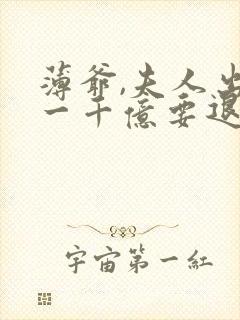 薄爺,夫人出
一千億要退
宇宙第一紅